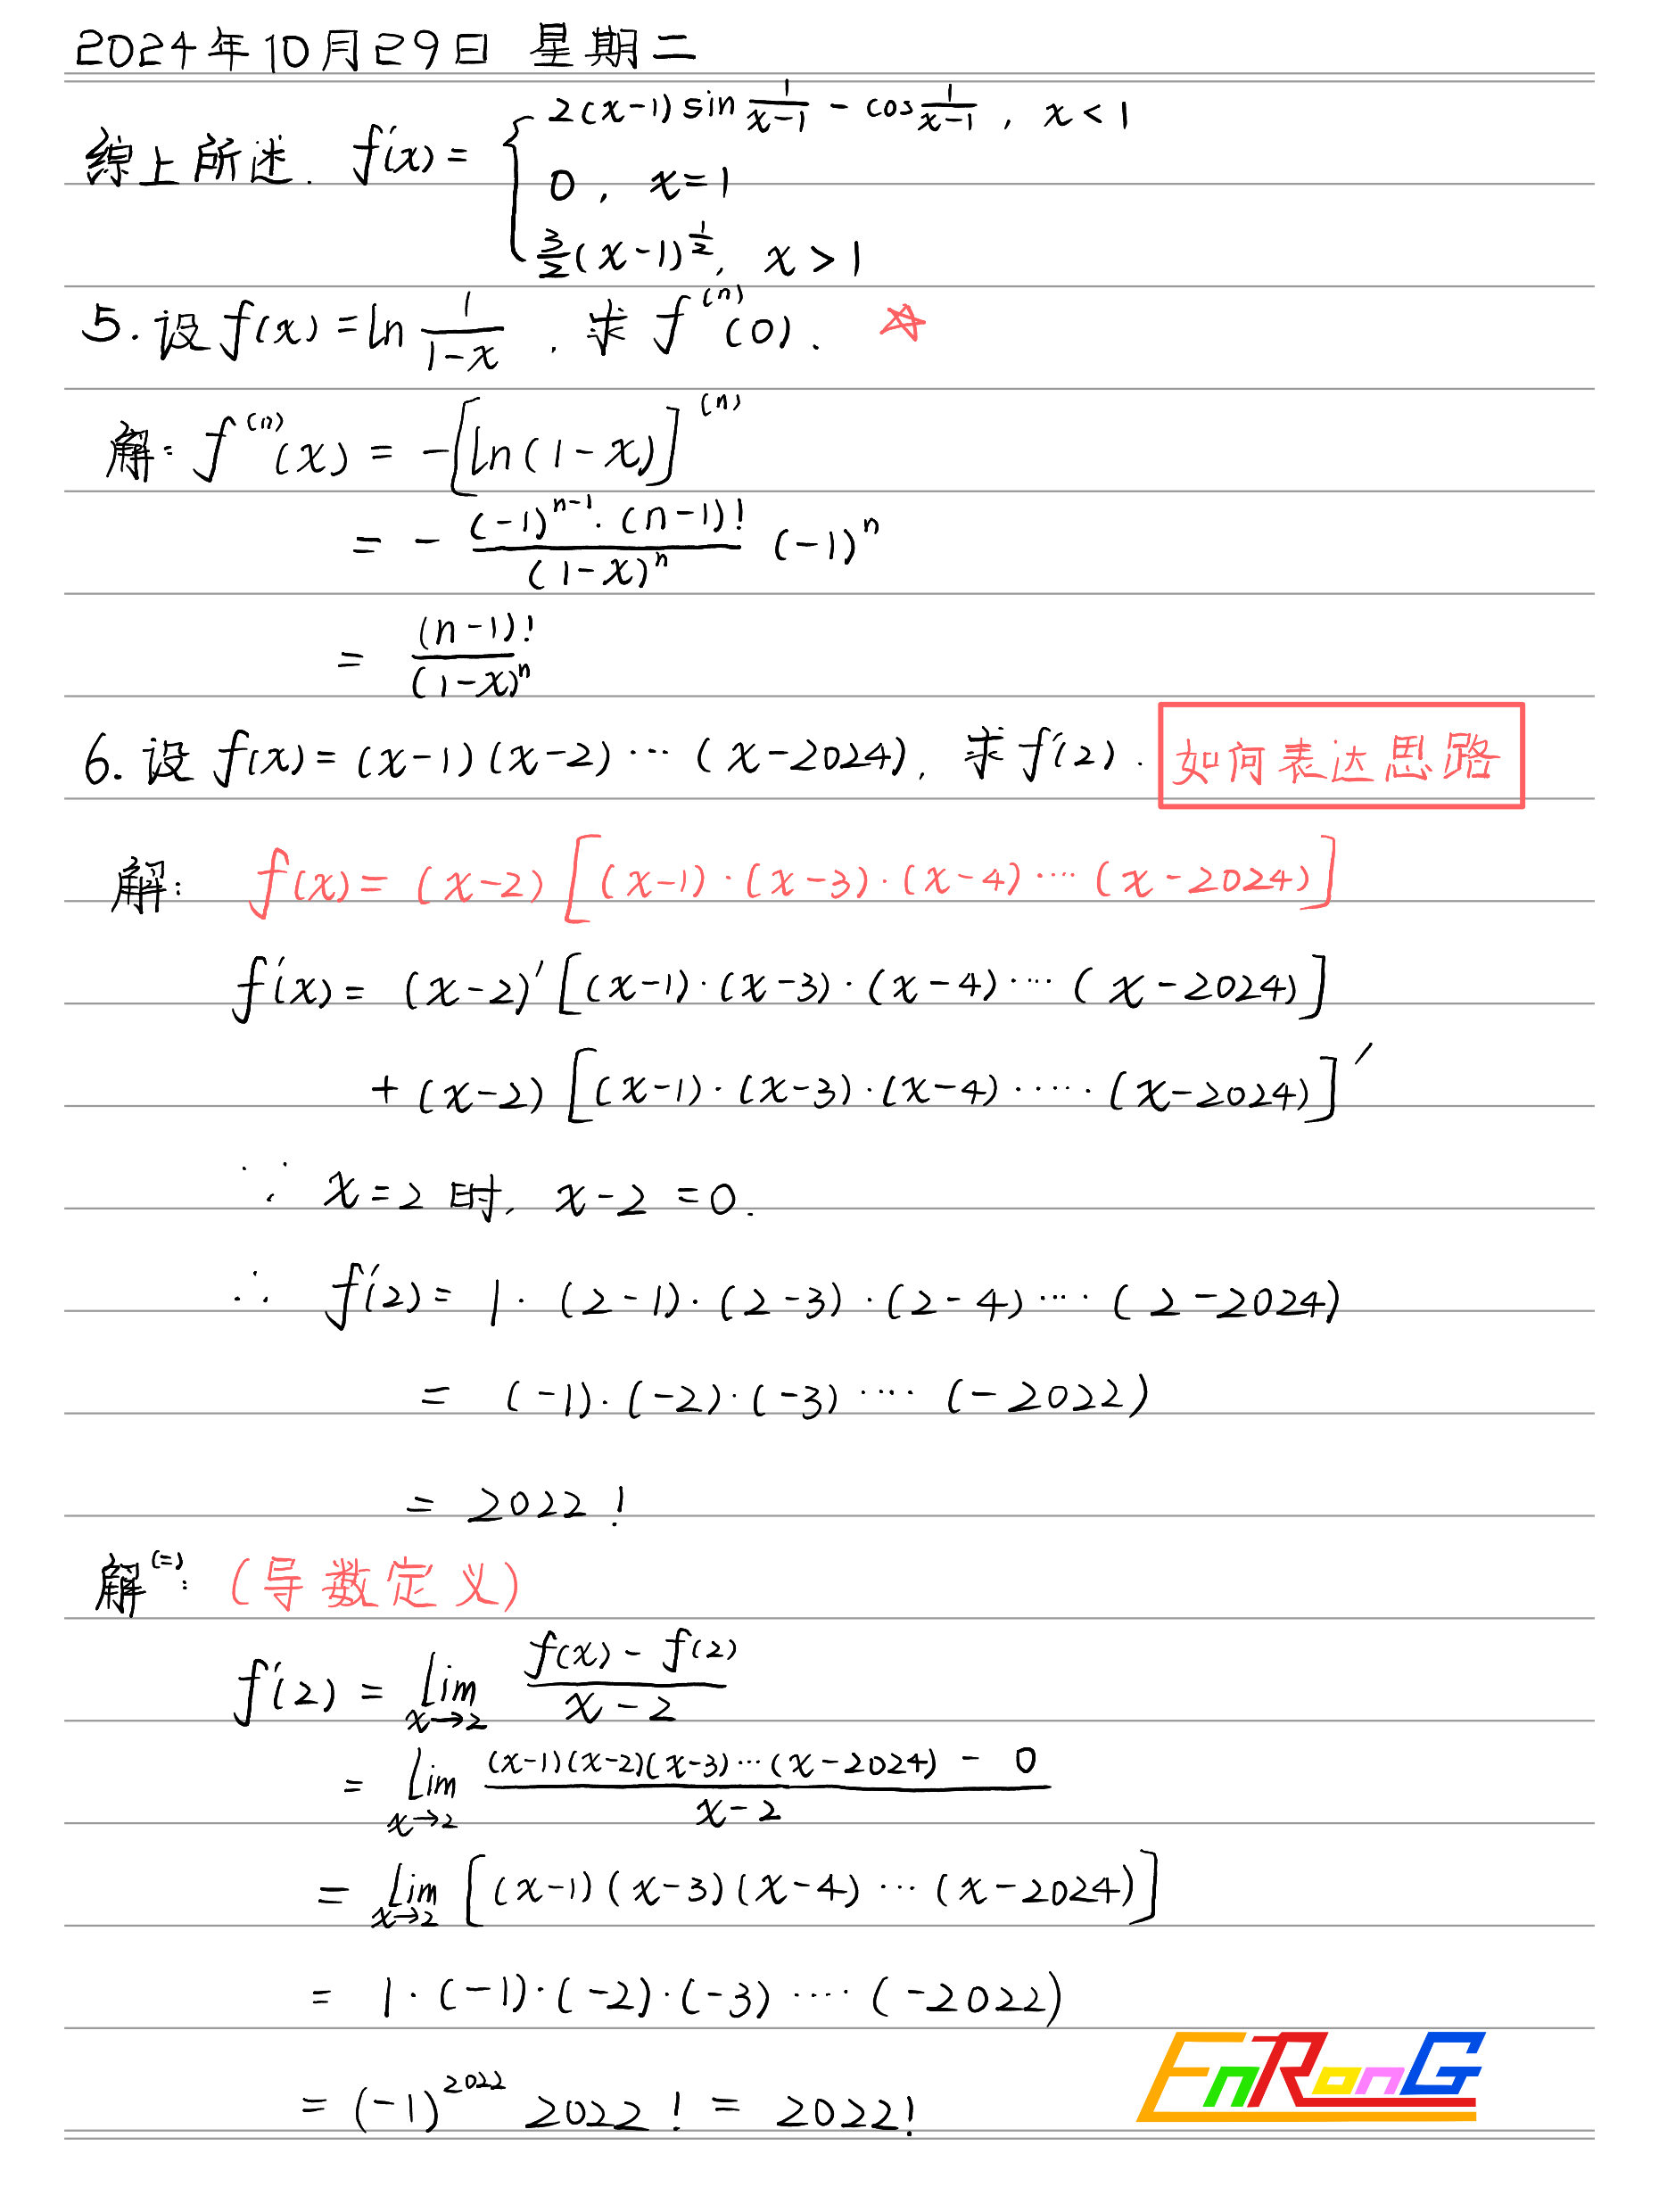 2024年10月29日 星期二
综上所述. f'(x) = { 2(x-1) sin 1/(x-1) - cos 1/(x-1), x < 1
0, x = 1
3/2 (x-1)^(1/2), x > 1
5. 设 f(x) = ln 1/(1-x). 求 f^(n)(0). ☆
解: f^(n)(x) = -[ln(1-x)]^(n)
= - (-1)^(n-1)·(n-1)!/(1-x)^n (-1)^n
= (n-1)!/(1-x)^n
6. 设 f(x) = (x-1)(x-2)···(x-2024), 求 f'(2). 如何表达思路
解: f(x) = (x-2)[(x-1)·(x-3)·(x-4)····(x-2024)]
f'(x) = (x-2)'[(x-1)·(x-3)·(x-4)····(x-2024)]
+ (x-2)[(x-1)·(x-3)·(x-4)·····(x-2024)]'
∵ x = 2 时, x-2 = 0.
∴ f'(2) = 1·(2-1)·(2-3)·(2-4)····(2-2024)
= (-1)·(-2)·(-3)····(-2022)
= 2022!
解(二): (导数定义)
f'(2) = lim x→2 (f(x) - f(2))/(x-2)
= lim x→2 ((x-1)(x-2)(x-3)···(x-2024) - 0)/(x-2)
= lim x→2 [(x-1)(x-3)(x-4)···(x-2024)]
= 1·(-1)·(-2)·(-3)····(-2022)
= (-1)^2022 2022! = 2022!
EnRonG